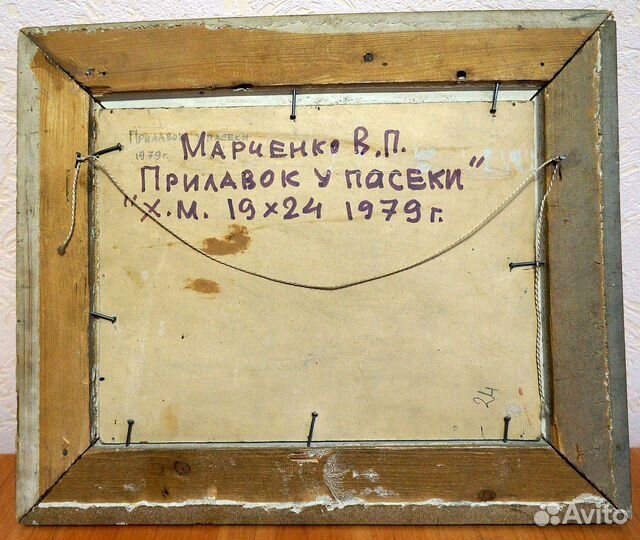 Прилавок у пасеки
1979г.
Марченко В.П.
Прилавок у пасеки"
"Х.М. 19×24 1979г.
24
Avito